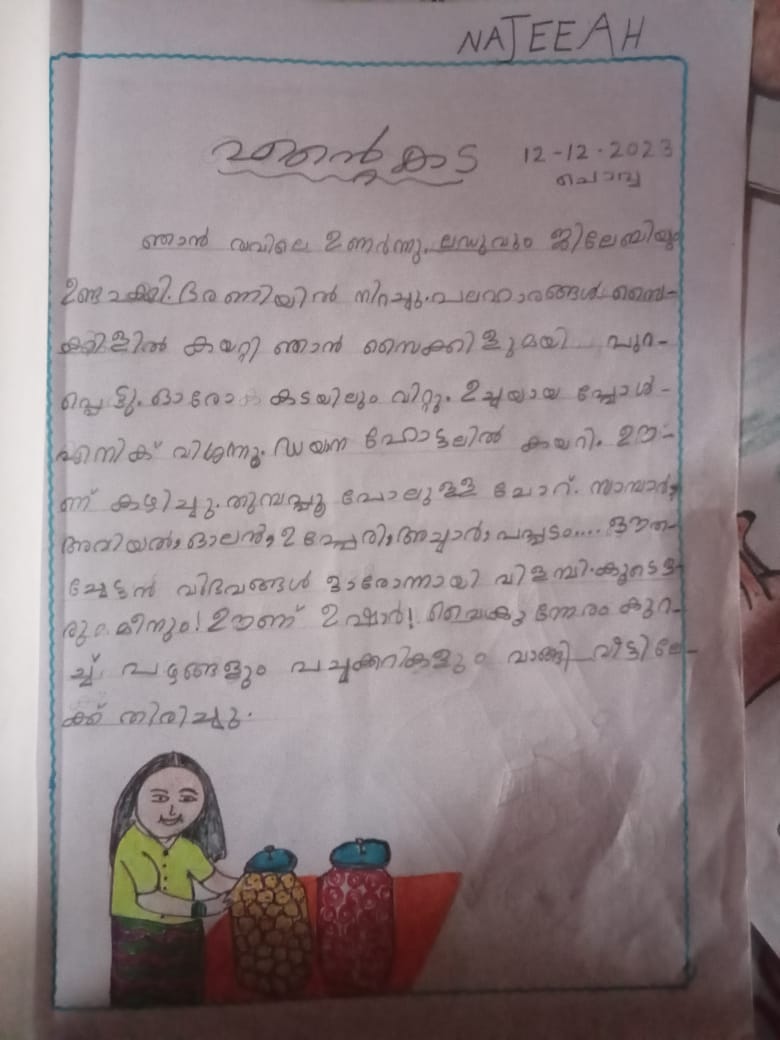 NAJEEAH
എന്റെ കട 12-12-2023
ചൊവ്വ
ഞാൻ രാവിലെ ഉണർന്നു. ലഡുവും ജിലേബിയും
ഉണ്ടാക്കി. ഭരണിയിൽ നിറച്ചു. പലഹാരങ്ങൾ സൈ-
ക്കിളിൽ കയറ്റി ഞാൻ സൈക്കിളുമായി പുറ-
പ്പെട്ടു. ഓരോ കടയിലും വിറ്റു. ഉച്ചയായ പ്പോൾ-
എനിക് വിശന്നു. ഡയാന ഹോട്ടലിൽ കയറി. ഊ-
ണ് കഴിച്ചു. തുമ്പപ്പൂ പോലുള്ള ചോറ്. സാമ്പാർ,
അവിയൽ, ഓലൻ, ഉപ്പേരി, അച്ചാർ, പപ്പടം....
ചേട്ടൻ വിഭവങ്ങൾ ഓരോന്നായി വിളമ്പി. കൂടെ ഒ-
രു മീനും! ഊണ് ഉഷാർ! വൈകുന്നേരം കുറ-
ച്ച് പഴങ്ങളും പച്ചക്കറികളും വാങ്ങി വീട്ടിലേ-
ക്ക് തിരിച്ചു.